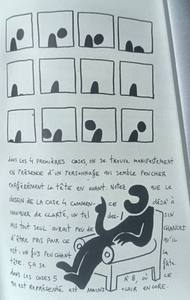 DANS LES 4 PREMIÈRES CASES, ON SE TROUVE MANIFESTEMENT
EN PRÉSENCE D'UN PERSONNAGE QUI SEMBLE PENCHER
LA TÊTE EN AVANT. NOTEZ QUE LE
DESSIN DE LA CASE 4 COMMENCE DÉJÀ À
MANQUER DE CLARTÉ, UN TEL DESSIN
MIS TOUT SEUL AURAIT PEU DE CHANCES
D'ÊTRE PRIS POUR CE QU'IL
EST : UN PENCHANT LA
TÊTE. ÇA SE
DANS LES CASES 5 À 8, OÙ CE
QUI EST REPRÉSENTÉ EST MOINS CLAIR ENCORE.